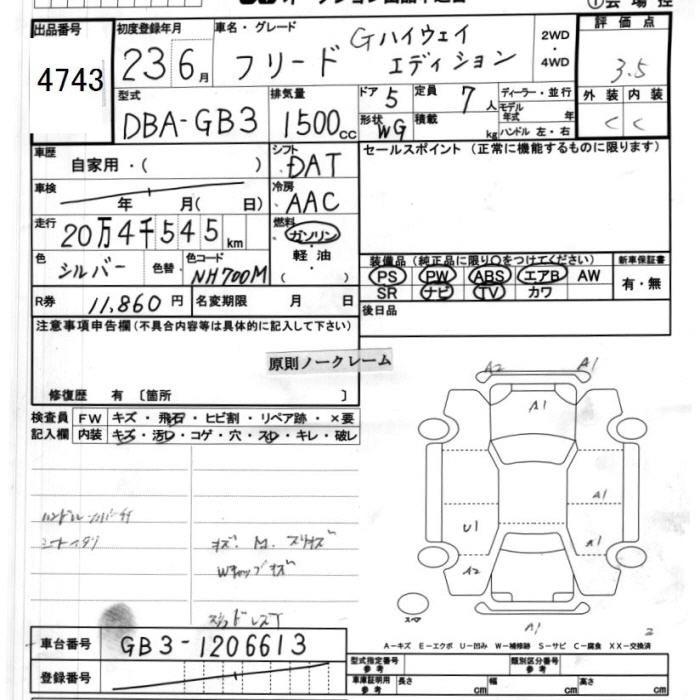 オークション出品申込書
①会場控
出品番号 初度登録年月 車名・グレード 評価点
4743 23 6月 フリード Gハイウェイ エディション 2WD・4WD 3.5
型式 排気量 ドア 5 定員 7人 ディーラー・並行 外装 内装
DBA-GB3 1500cc 形状 WG 積載 kg モデル年式 年 C C
ハンドル 左・右
車歴 自家用・( ) シフト DAT セールスポイント(正常に機能するものに限ります)
車検 年 月( 日) 冷房 AAC
走行 20万4千545km 燃料 ガソリン
軽・油
( )
色 シルバー 色替 色コード NH700M 装備品(純正品に限り○をつけてください) 新車保証書
PS PW ABS エアB AW 有・無
SR ナビ TV カワ
R券 11,860円 名変期限 月 日 後日品
注意事項申告欄(不具合内容等は具体的に記入して下さい)
原則ノークレーム
修復歴 有 〔箇所 〕
検査員 FW キズ・飛石・ヒビ割・リペア跡・×要
記入欄 内装 キズ・汚レ・コゲ・穴・スレ・キレ・破レ
A2 A1
A1
A1
U1 A1
A2
A1
2
キズ. M. スリキズ
Wキャップキズ
スペア
A-キズ E-エクボ U-凹み W-補修跡 S-サビ C-腐食 XX-交換済
車台番号 GB3-1206613
登録番号
型式指定番号 参考 類別区分番号 参考
車庫証明用 参考 長さ cm 幅 cm 高さ cm